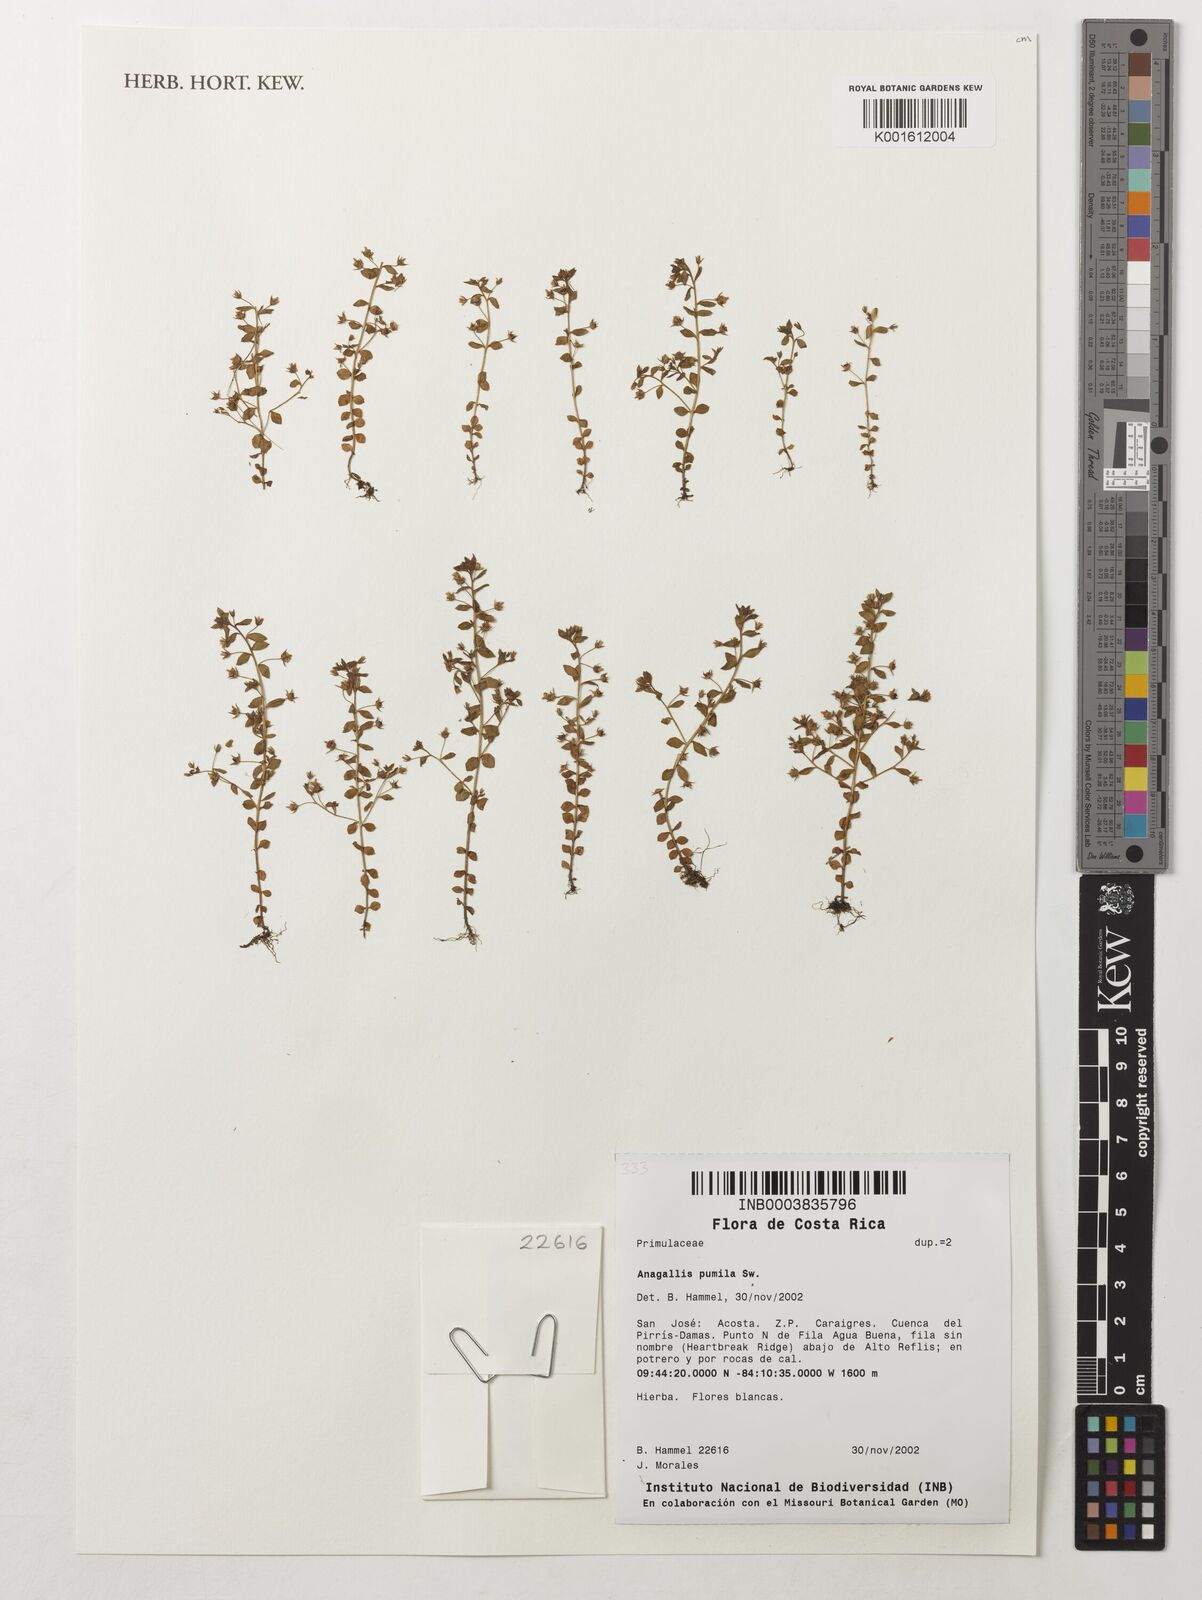 cm
HERB. HORT. KEW.
ROYAL BOTANIC GARDENS KEW
K001612004
333
INB0003835796
Flora de Costa Rica
Primulaceae dup.=2
Anagallis pumila Sw.
Det. B. Hammel, 30/nov/2002
San José: Acosta. Z.P. Caraigres. Cuenca del
Pirrís-Damas. Punto N de Fila Agua Buena, fila sin
nombre (Heartbreak Ridge) abajo de Alto Reflis; en
potrero y por rocas de cal.
09:44:20.0000 N -84:10:35.0000 W 1600 m
Hierba. Flores blancas.
B. Hammel 22616 30/nov/2002
J. Morales
Instituto Nacional de Biodiversidad (INB)
En colaboración con el Missouri Botanical Garden (MO)
22616
D50 Illuminant, 2 degree observer
Density
Golden Thread
Colors by Munsell Color Services Lab
Don Williams
inches
centimeters
Royal Botanic Gardens
Kew
0 1 2 3 4 5 6 7 8 9 10
cm
copyright reserved